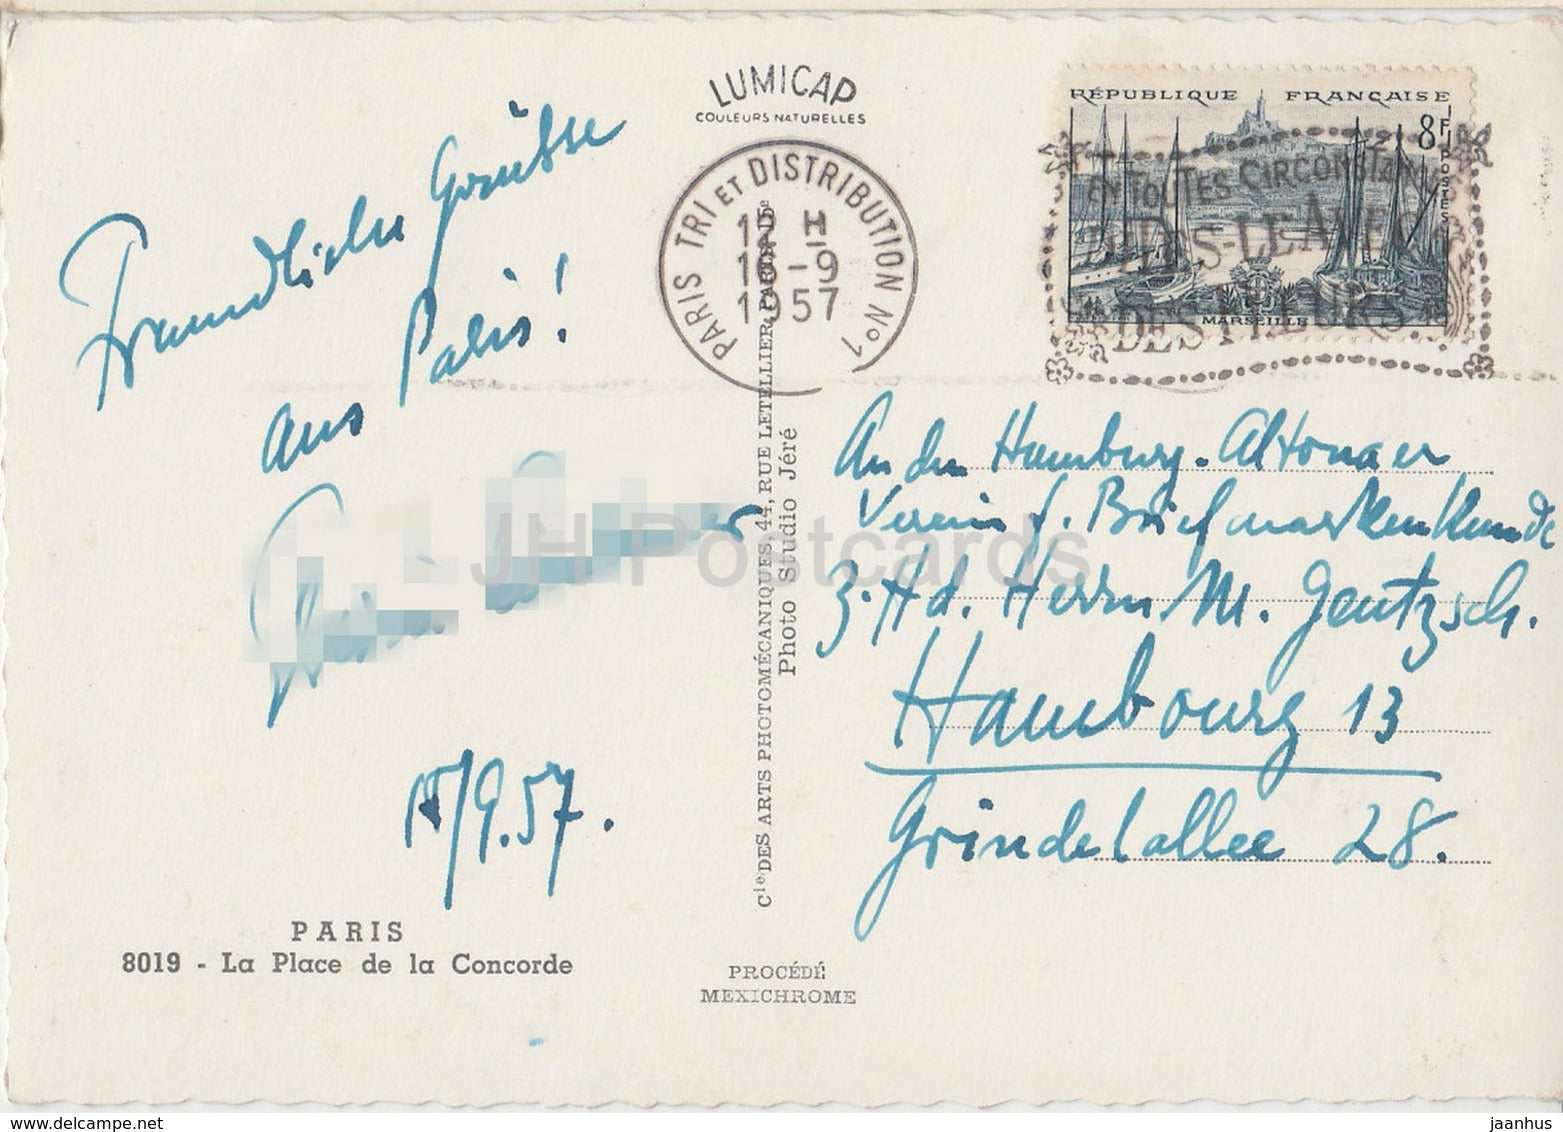 LUMICAP
COULEURS NATURELLES
RÉPUBLIQUE FRANÇAISE
8F
POSTES
MARSEILLE
EN TOUTES CIRCONSTANCES
DITES-LE AVEC
DES FLEURS
PARIS TRI ET DISTRIBUTION No 1
12 H
16-9
1957
Freundliche Grüsse
aus Paris!
/9.57.
An den Hamburg-Altonaer
Verein f. Briefmarkenkunde
z. Hd. Herrn M. Gentzsch.
Hambourg 13
Grindelallee 28.
Cie DES ARTS PHOTOMÉCANIQUES, 44, RUE LETELLIER, PARIS
Photo Studio Jéré
PARIS
8019 - La Place de la Concorde
PROCÉDÉ
MEXICHROME
JH Postcards
www.delcampe.net
jaanhus